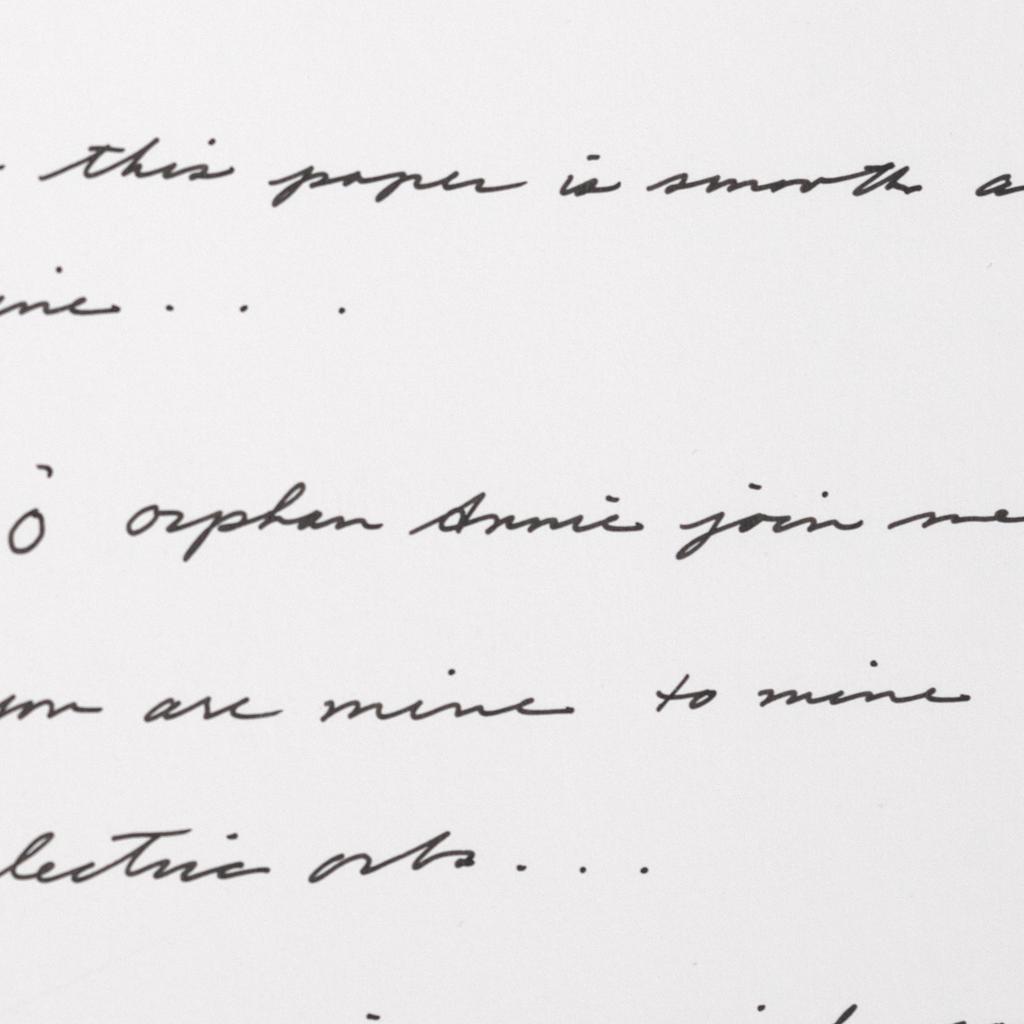 this paper is smooth a
ine . . .
O orphan Annie join me
you are mine to mine
lectric orbs . . .